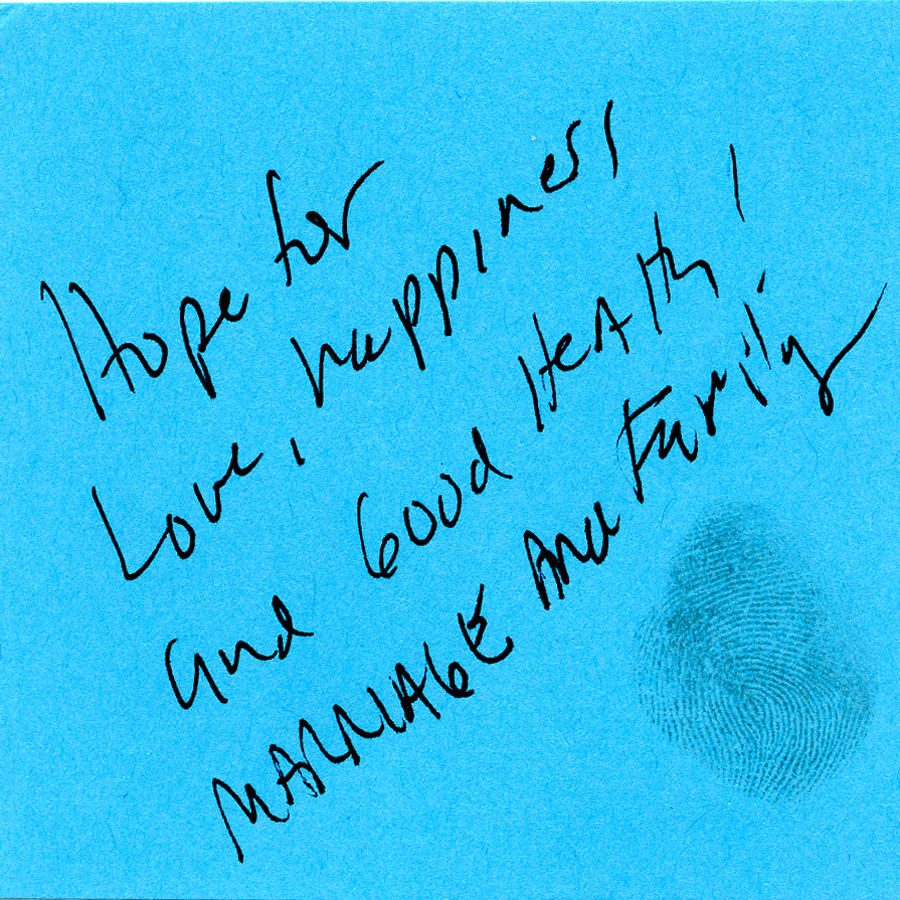 Hope for
Love, happiness,
and Good HeAlth!
MARRIAGE And Family